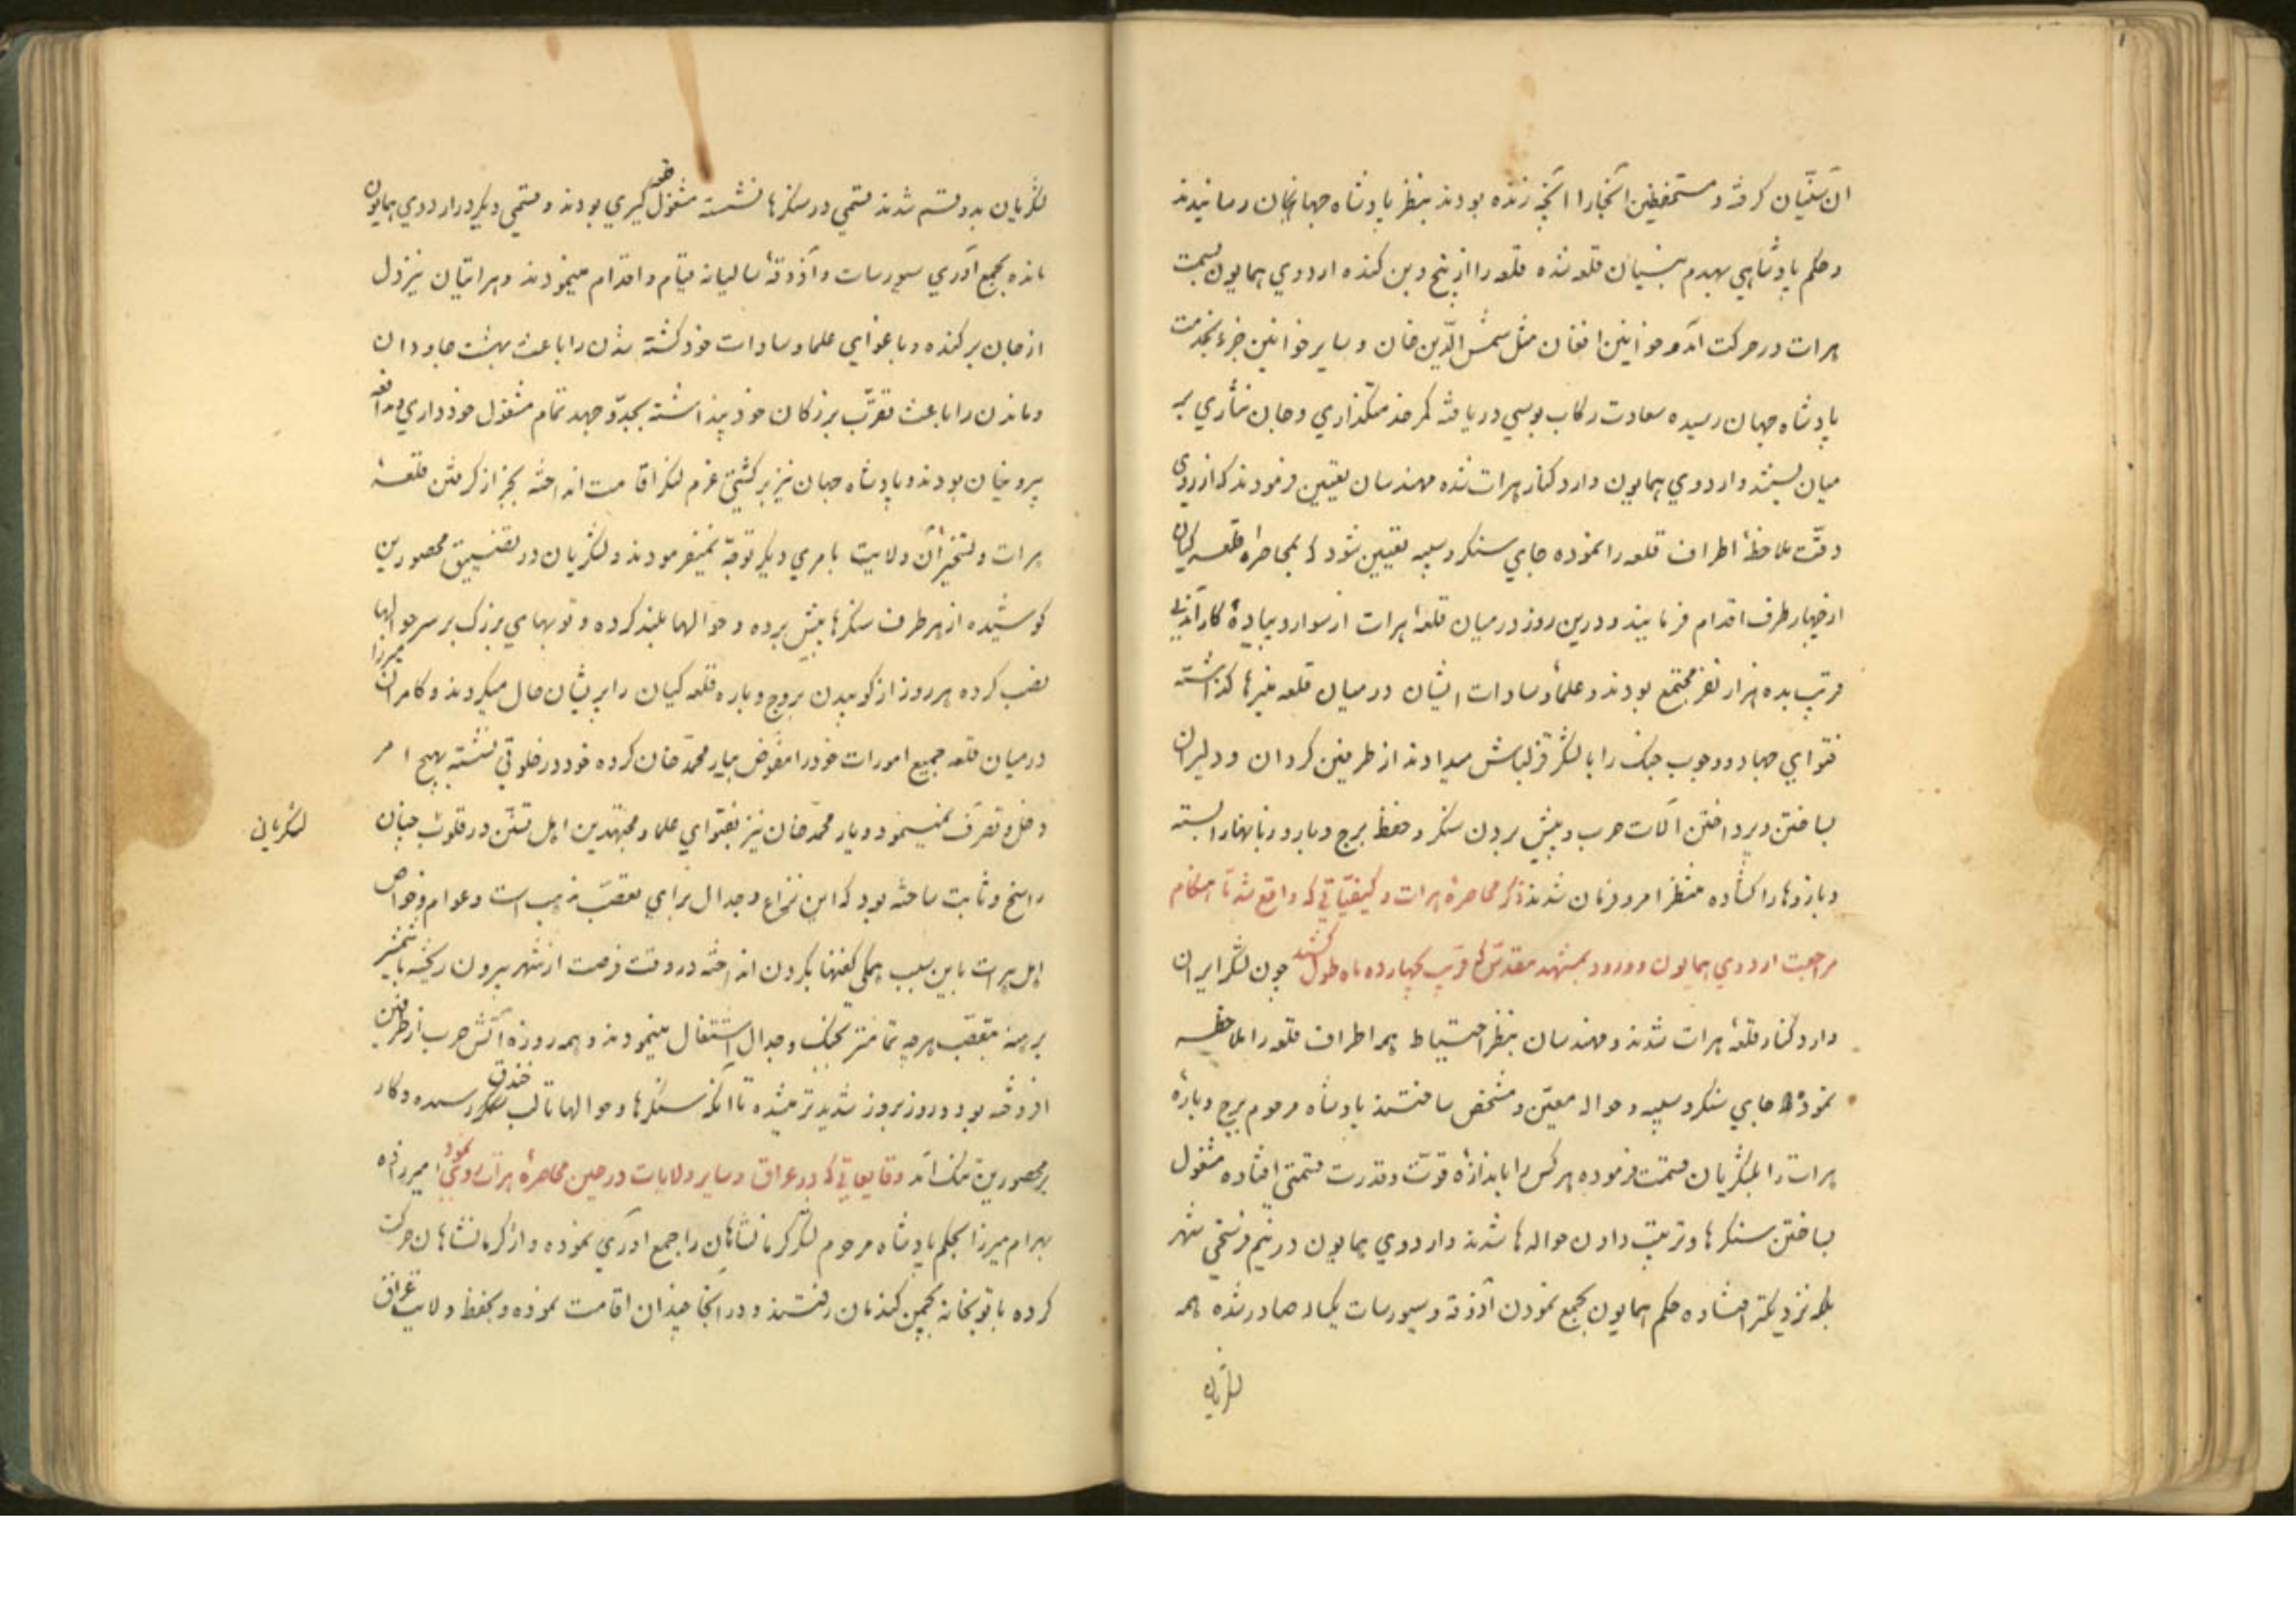 ان سنّیان گرفته و مستحفظین آنجا را آنچه زنده بودند بنظر پادشاه جهانبان رسانیدند
و حکم پادشاهی بهدم بنیان قلعه شده قلعه را از بیخ و بن کنده اردوی همایون بسمت
هرات در حرکت آمد و خوانین افغان مثل شمس الدّین خان و سایر خوانین جزء بخدمت
پادشاه جهان رسیده سعادت رکاب بوسی دریافته کمر خدمتگذاری و جان نثاری بر
میان بستند و اردوی همایون وارد کنار هرات شده مهندسان تعیین فرمودند که از روی
دقّت ملاحظهٔ اطراف قلعه را نموده جای سنگر و سیبه تعیین شود که بمحاصره قلعه کیان
از چهار طرف اقدام فرمایند و درین روز در میان قلعهٔ هرات از سواره و پیادهٔ کارآمدنی
قریب بده هزار نفر مجتمع بودند و علماء و سادات ایشان در میان قلعه منبرها گذاشته
فتوای جهاد و وجوب جنک را با لشگر قزلباش میدادند از طرفین گردان و دلیران
بساختن و پرداختن آلات حرب و پیش بردن سنگر و حفظ برج و باره و زبانها را بسته
و بازوها را گشاده منتظر امر و فرمان شدند ذکر محاصرهٔ هرات و کیفیّاتی که واقع شد تا هنگام
مراجعت اردوی همایون و ورود بمشهد مقدّس که قریب بچهارده ماه طول کشید چون لشگر ایران
وارد کنار قلعهٔ هرات شدند و مهندسان بنظر احتیاط همه اطراف قلعه را ملاحظه
نموده جای سنگر و سیبه و حواله معیّن و مشخص ساختند پادشاه مرحوم برج و بارهٔ
هرات را بلشگریان قسمت فرموده هر کس را باندازهٔ قوّت و قدرت قسمتی افتاده مشغول
بساختن سنگرها و ترتیب دادن حواله ها شدند و اردوی همایون در نیم فرسخی شهر
بلکه نزدیکتر افتاده حکم همایون بجمع نمودن آذوقه و سیورسات یکساله صادر شده همه
لشگریان
لشگریان بدو قسم شدند قسمی در سنگرها نشسته مشغول قلعه گیری بودند و قسمی دیگر در اردوی همایون
مانده بجمع آوری سیورسات و آذوقهٔ سالیانه قیام و اقدام مینمودند و هراتیان نیز دل
از جان برکنده و باغوای علما و سادات خود کشته شدن را باعث بهشت جاودان
و ماندن را باعث تقرّب بزرگان خود پنداشته بجدّ و جهد تمام مشغول خودداری و مدافعه
بیرونیان بودند و پادشاه جهان نیز بر کشتی عزم لنگر اقامت انداخته بجز از گرفتن قلعهٔ
هرات و تسخیر آن ولایت بامری دیگر توجّه نمیفرمودند و لشگریان در تضییق محصورین
کوشیده از هر طرف سنگرها پیش برده و حوالها بلند کرده و توبهای بزرک بر سر حوالها
نصب کرده هر روز از کوبیدن بروج و باره قلعه کیان را پریشان حال میکردند و کامران میرزا
در میان قلعه جمیع امورات خود را مفوّض بیار محمّد خان کرده خود در خلوتی نشسته بهیچ امر
دخل و تصرّف نمینمود و یار محمّد خان نیز بفتوای علما و مجتهدین اهل تسنّن در قلوب چنان
لشگریان
راسخ و ثابت ساخته بود که این نزاع و جدال برای تعصّب مذهب است و عوام و خواص
اهل هرات باین سبب همگی کفنها بگردن انداخته در وقت فرصت از شهر بیرون ریخته با شمشیر
برهنه بتعصّب هر چه تمامتر بجنک و جدال اشتغال مینمودند و همه روزه آتش حرب از طرفین
افروخته بود و روز بروز شدیدتر میشده تا آنکه سنگرها و حوالها تا لب خندق رسیده و کار
بر محصورین تنک آمد وقایعاتی که در عراق و سایر ولایات در حین محاصرهٔ هرات روی نمود امیرزاده
بهرام میرزا بحکم پادشاه مرحوم لشگر کرمانشاهان را جمع آوری نموده و از کرمانشاهان حرکت
کرده با توپخانه بچمن کندمان رفتند و در آنجا چندان اقامت نموده و بحفظ ولایت عراق